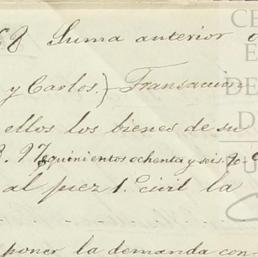 Suma anterior
y Carlos.) Transacción
ellos los bienes de su
97 quinientos ochenta y seis
al juez 1.º Civil la
poner la demanda con
CE
E
DE
D